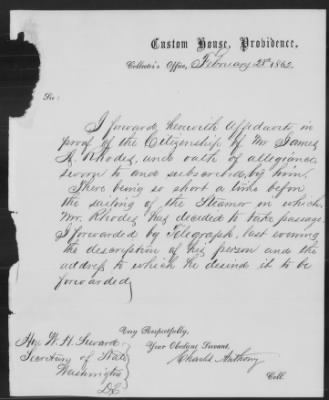 Custom House, Providence,
Collector's Office, February 28th 1862
Sir:
I forward herewith Affidavit in
proof of the Citizenship of Mr James
A. Rhodes, and oath of allegiance
sworn to and subscribed, by him.
There being so short a time before
the sailing of the Steamer in which
Mr. Rhodes has decided to take passage
I forwarded by Telegraph, last evening
the description of his person and the
address to which he desired it to be
forwarded
Very Respectfully,
Your Obedient Servant,
Charles Anthony
Coll.
Hon W. H. Seward
Secretary of State
Washington
DC